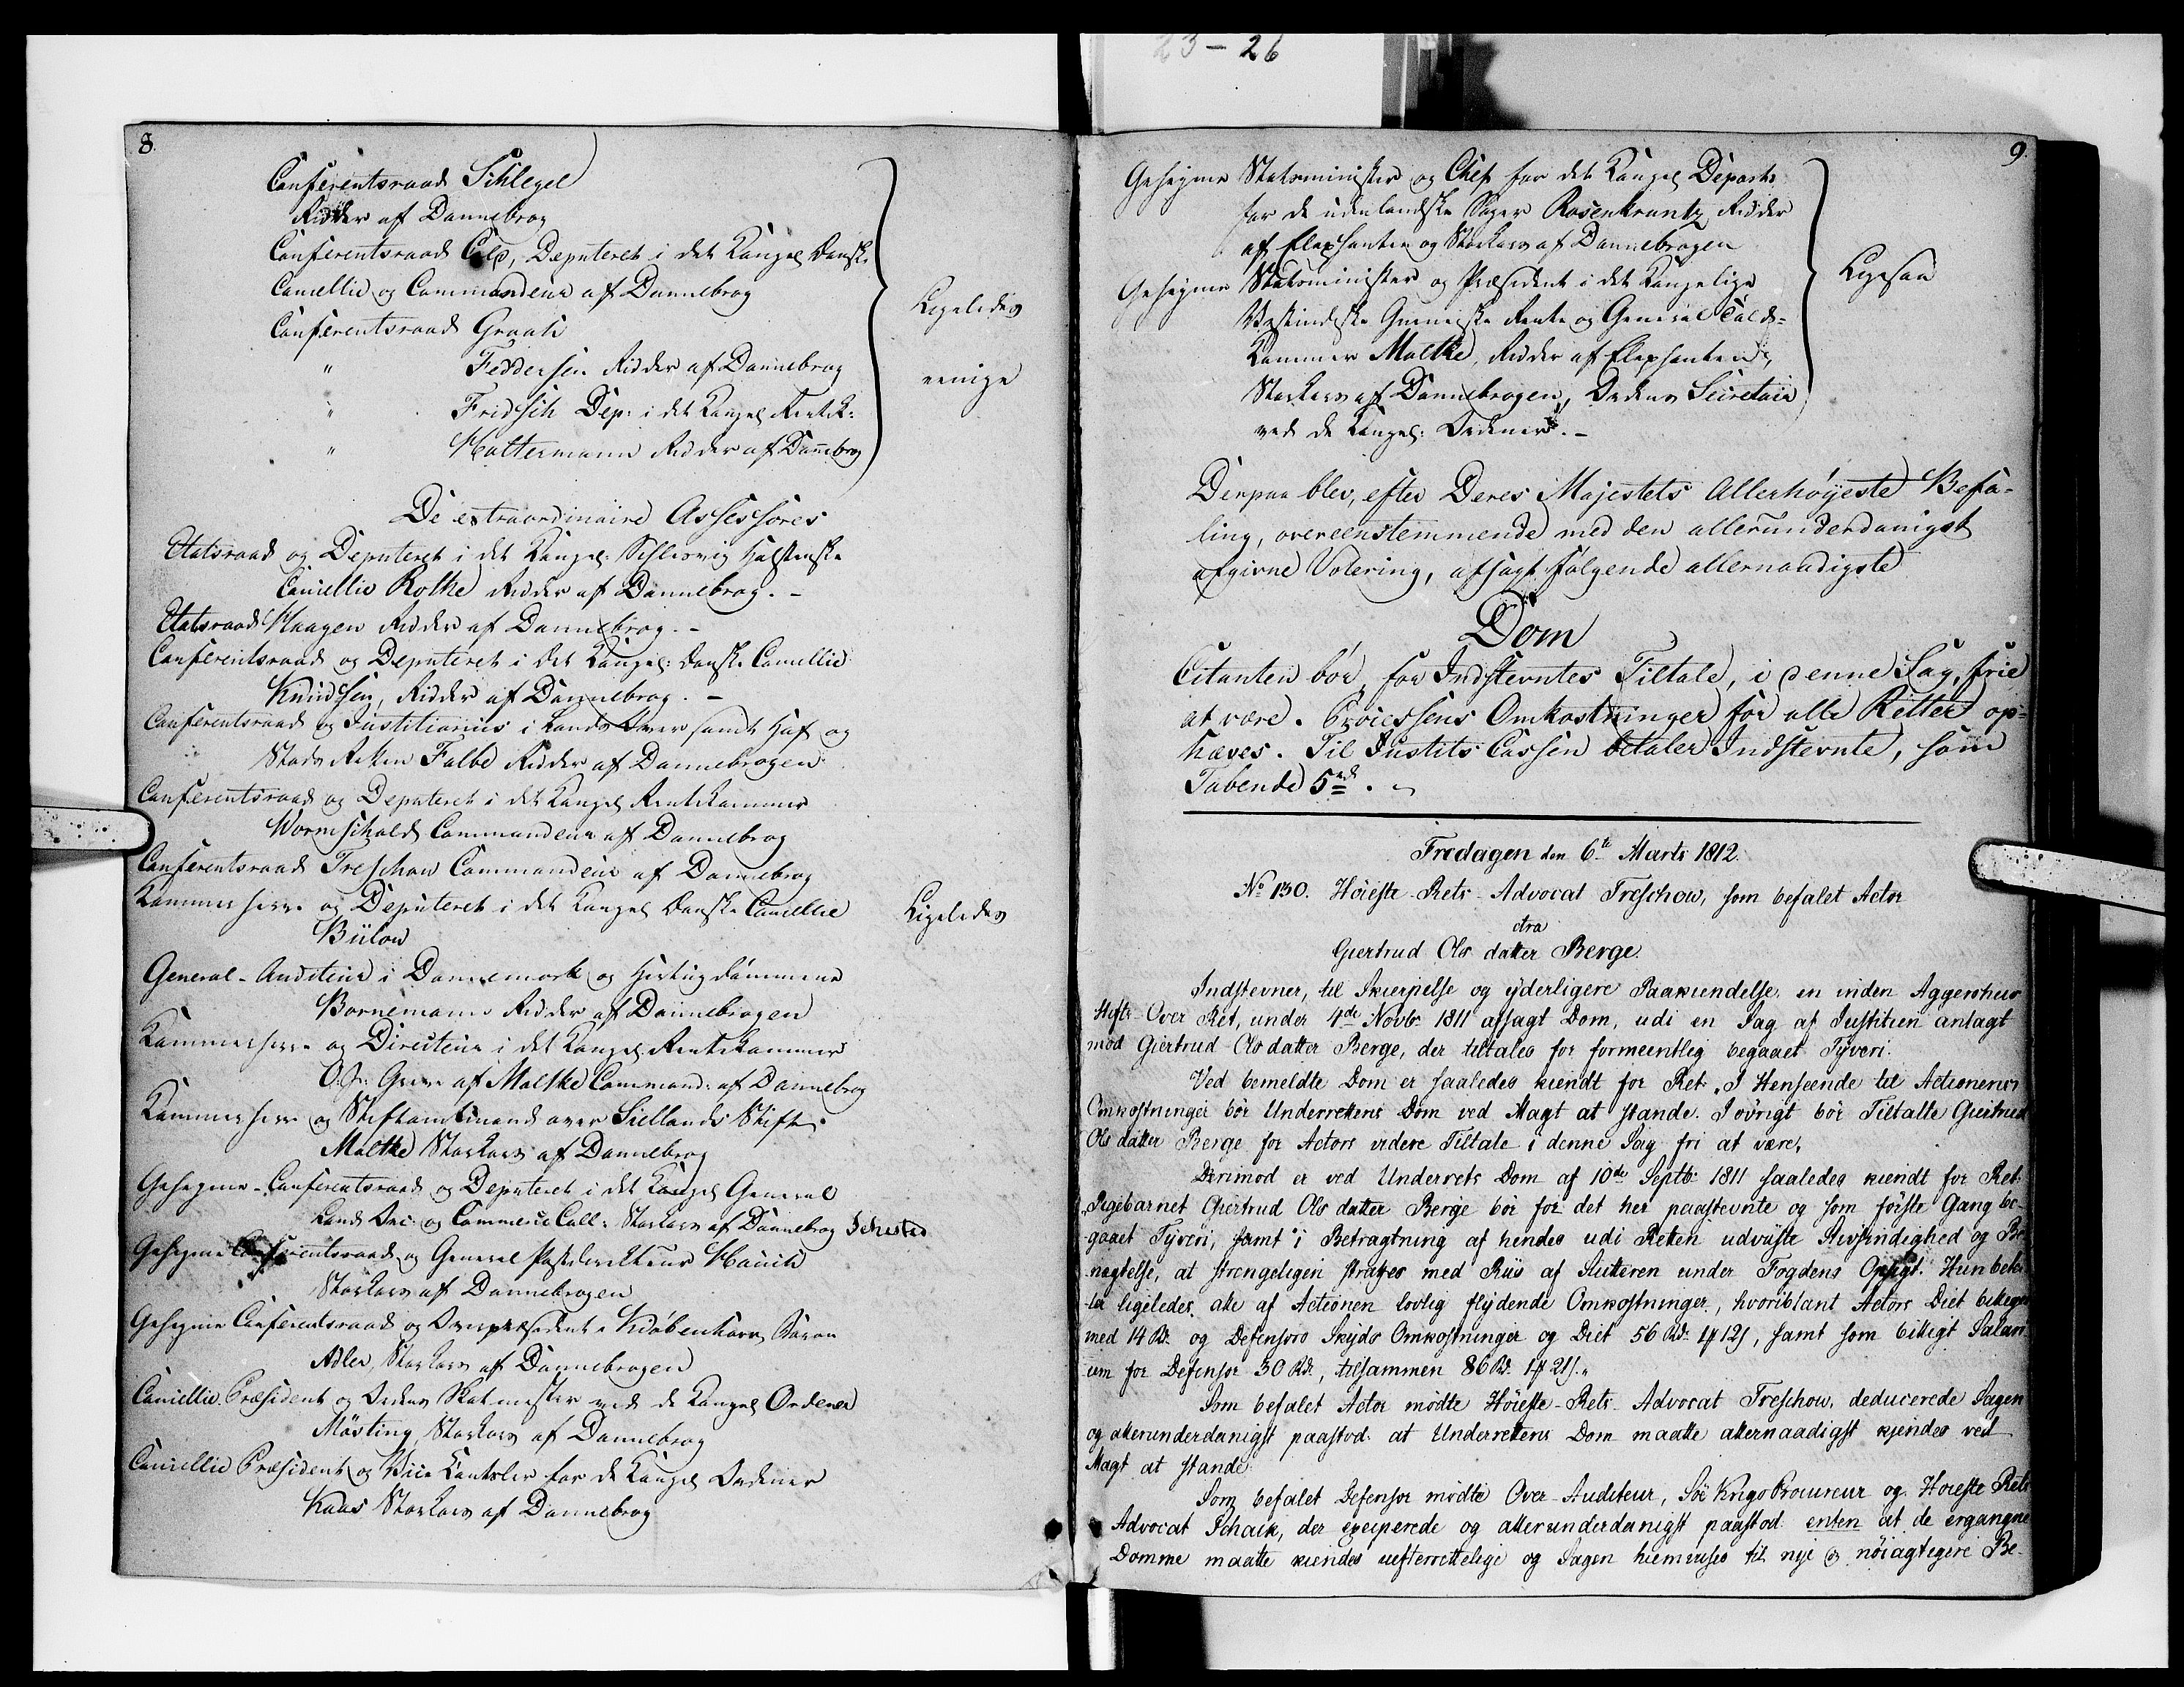 23-26
8.
Conferentsraad Schlegel
Ridder af Dannebrog
Conferentsraad Cold, Deputeret i det Kongel. Danske
Cancellie og Commandeur af Dannebrog
Conferentsraad Graah
" Feddersen Ridder af Dannebrog
" Fridsch Dep: i det Kongel. Rentek:
" Haltermann Ridder af Dannebrog
Ligeledes
eenige
De extraordinaire Assessores
Etatsraad og Deputeret i det Kongel: Schlesvig Holstenske
Cancellie Rothe Ridder af Dannebrog. -
Etatsraad Haagen Ridder af Dannebrog. -
Conferentsraad og Deputeret i det Kongel: Danske Cancellie
Knudsen, Ridder af Dannebrog. -
Conferentsraad og Justitiarius i Lands Over samt Hof og
Stads Retten Falbe Ridder af Dannebrogen
Conferentsraad og Deputeret i det Kongel. Rentekammer
Wormskiold Commandeur af Dannebrog
Conferentsraad Treschow Commandeur af Dannebrog
Kammerherre og Deputeret i det Kongel Danske Cancellie
Bülow
Ligeledes
General-Auditeur i Dannemark og Hertugdømmene
Bornemann Ridder af Dannebrogen
Kammerherre og Directeur i det Kongel. Rentekammer
O. J. Greve af Moltke Command: af Dannebrog
Kammerherre og Stiftamtmand over Siellands Stift
Moltke Storkors af Dannebrog
Geheyme-Conferentsraad og Deputeret i det Kongel General
Lands Oec: og Commerce Coll: Storkors af Dannebrog Sehested
Geheyme Conferentsraad og General Postdirecteur Hauch
Storkors af Dannebrogen
Geheyme Conferentsraad og Overpræsident i Kiøbenhavn, Baron
Adler, Storkors af Dannebrogen
Cancellie Præsident og Ordens Skatmester ved de Kongel Ordener
Mösting Storkors af Dannebrog
Cancellie Præsident og Vice Cantsler for de Kongel Ordener
Kaas Storkors af Dannebrog
9.
Geheyme Statsminister og Chef for det Kongel Departe
for de udenlandske Sager Rosenkrantz Ridder
af Elephanten og Storkors af Dannebrogen
Geheyme Statsminister og Præsident i det Kongelige
Vestindiske Guineiske Rente og General Told-
Kammer Moltke, Ridder af Elephanten,
Storkors af Dannebrogen, Ordens Secretair
ved de Kongel: Ordener. -
Ligesaa
Derpaa blev, efter Deres Majestets Allerhöjeste Befa-
ling, overeenstemmende med den allerunderdanigst
afgivne Votering, afsagt følgende allernaadigste
Dom
Citanten bör, for Indstevntes Tiltale, i denne Sag, frie
at være. Processens Omkostninger for alle Retter op-
hæves. Til Justits Cassen betaler Indstevnte, som
Tabende 5 rd.
Fredagen den 6te Marts 1812.
No 130. Höieste-Rets-Advocat Treschow, som befalet Actor
ctra
Giertrud Olsdatter Berge.
Indstevner, til Skierpelse og yderligere Paakiendelse, en inden Aggershuus
Stifts-Over Ret, under 4de Novbr 1811 afsagt Dom, udi en Sag af Justitien anlagt
mod Giertrud Olsdatter Berge, der tiltales for formeentlig begaaet Tyveri.
Ved bemeldte Dom er saaledes kiendt for Ret: "I Henseende til Actionens
Omkostninger bör Underrettens Dom ved Magt at stande. I övrigt bör Tiltalte Giertrud
Olsdatter Berge for Actors videre Tiltale i denne Sag fri at være."
Derimod er ved Underrets Dom af 10de Septb: 1811 saaledes kiendt for Ret:
"Pigebarnet Giertrud Olsdatter Berge bör for det her paastevnte og som förste Gang be-
gaaet Tyveri, samt i Betragtning af hendes udi Retten udviiste Stivsindighed og Be-
nægtelse, at strengeligen straffes med Riis af Slutteren under Fogdens Opsigt. Hun beta-
ler ligeledes alle af Actionen lovlig flydende Omkostninger, hvoriblant Actors Diet billiges
med 14 Rd. og Defensors Skyds Omkostninger og Diet 56 Rd: 1 ₰ 12 s, samt som billigt Salari-
um for Defensor 30 Rd., tilsammen 86 Rd. 1 ₰ 21 s."
Som befalet Actor mödte Höieste-Rets-Advocat Treschow, deducerede Sagen
og allerunderdanigst paastod: at Underrettens Dom maatte allernaadigst kjendes ved
Magt at stande.
Som befalet Defensor mödte Over-Auditeur, Söe Krigs Procureur og Höieste Rets
Advocat Schack, der exciperede og allerunderdanigst paastod: enten at de ergangne
Domme maatte kiendes uefterrettelige og Sagen hiemvises til nye og nöiagtigere Be-